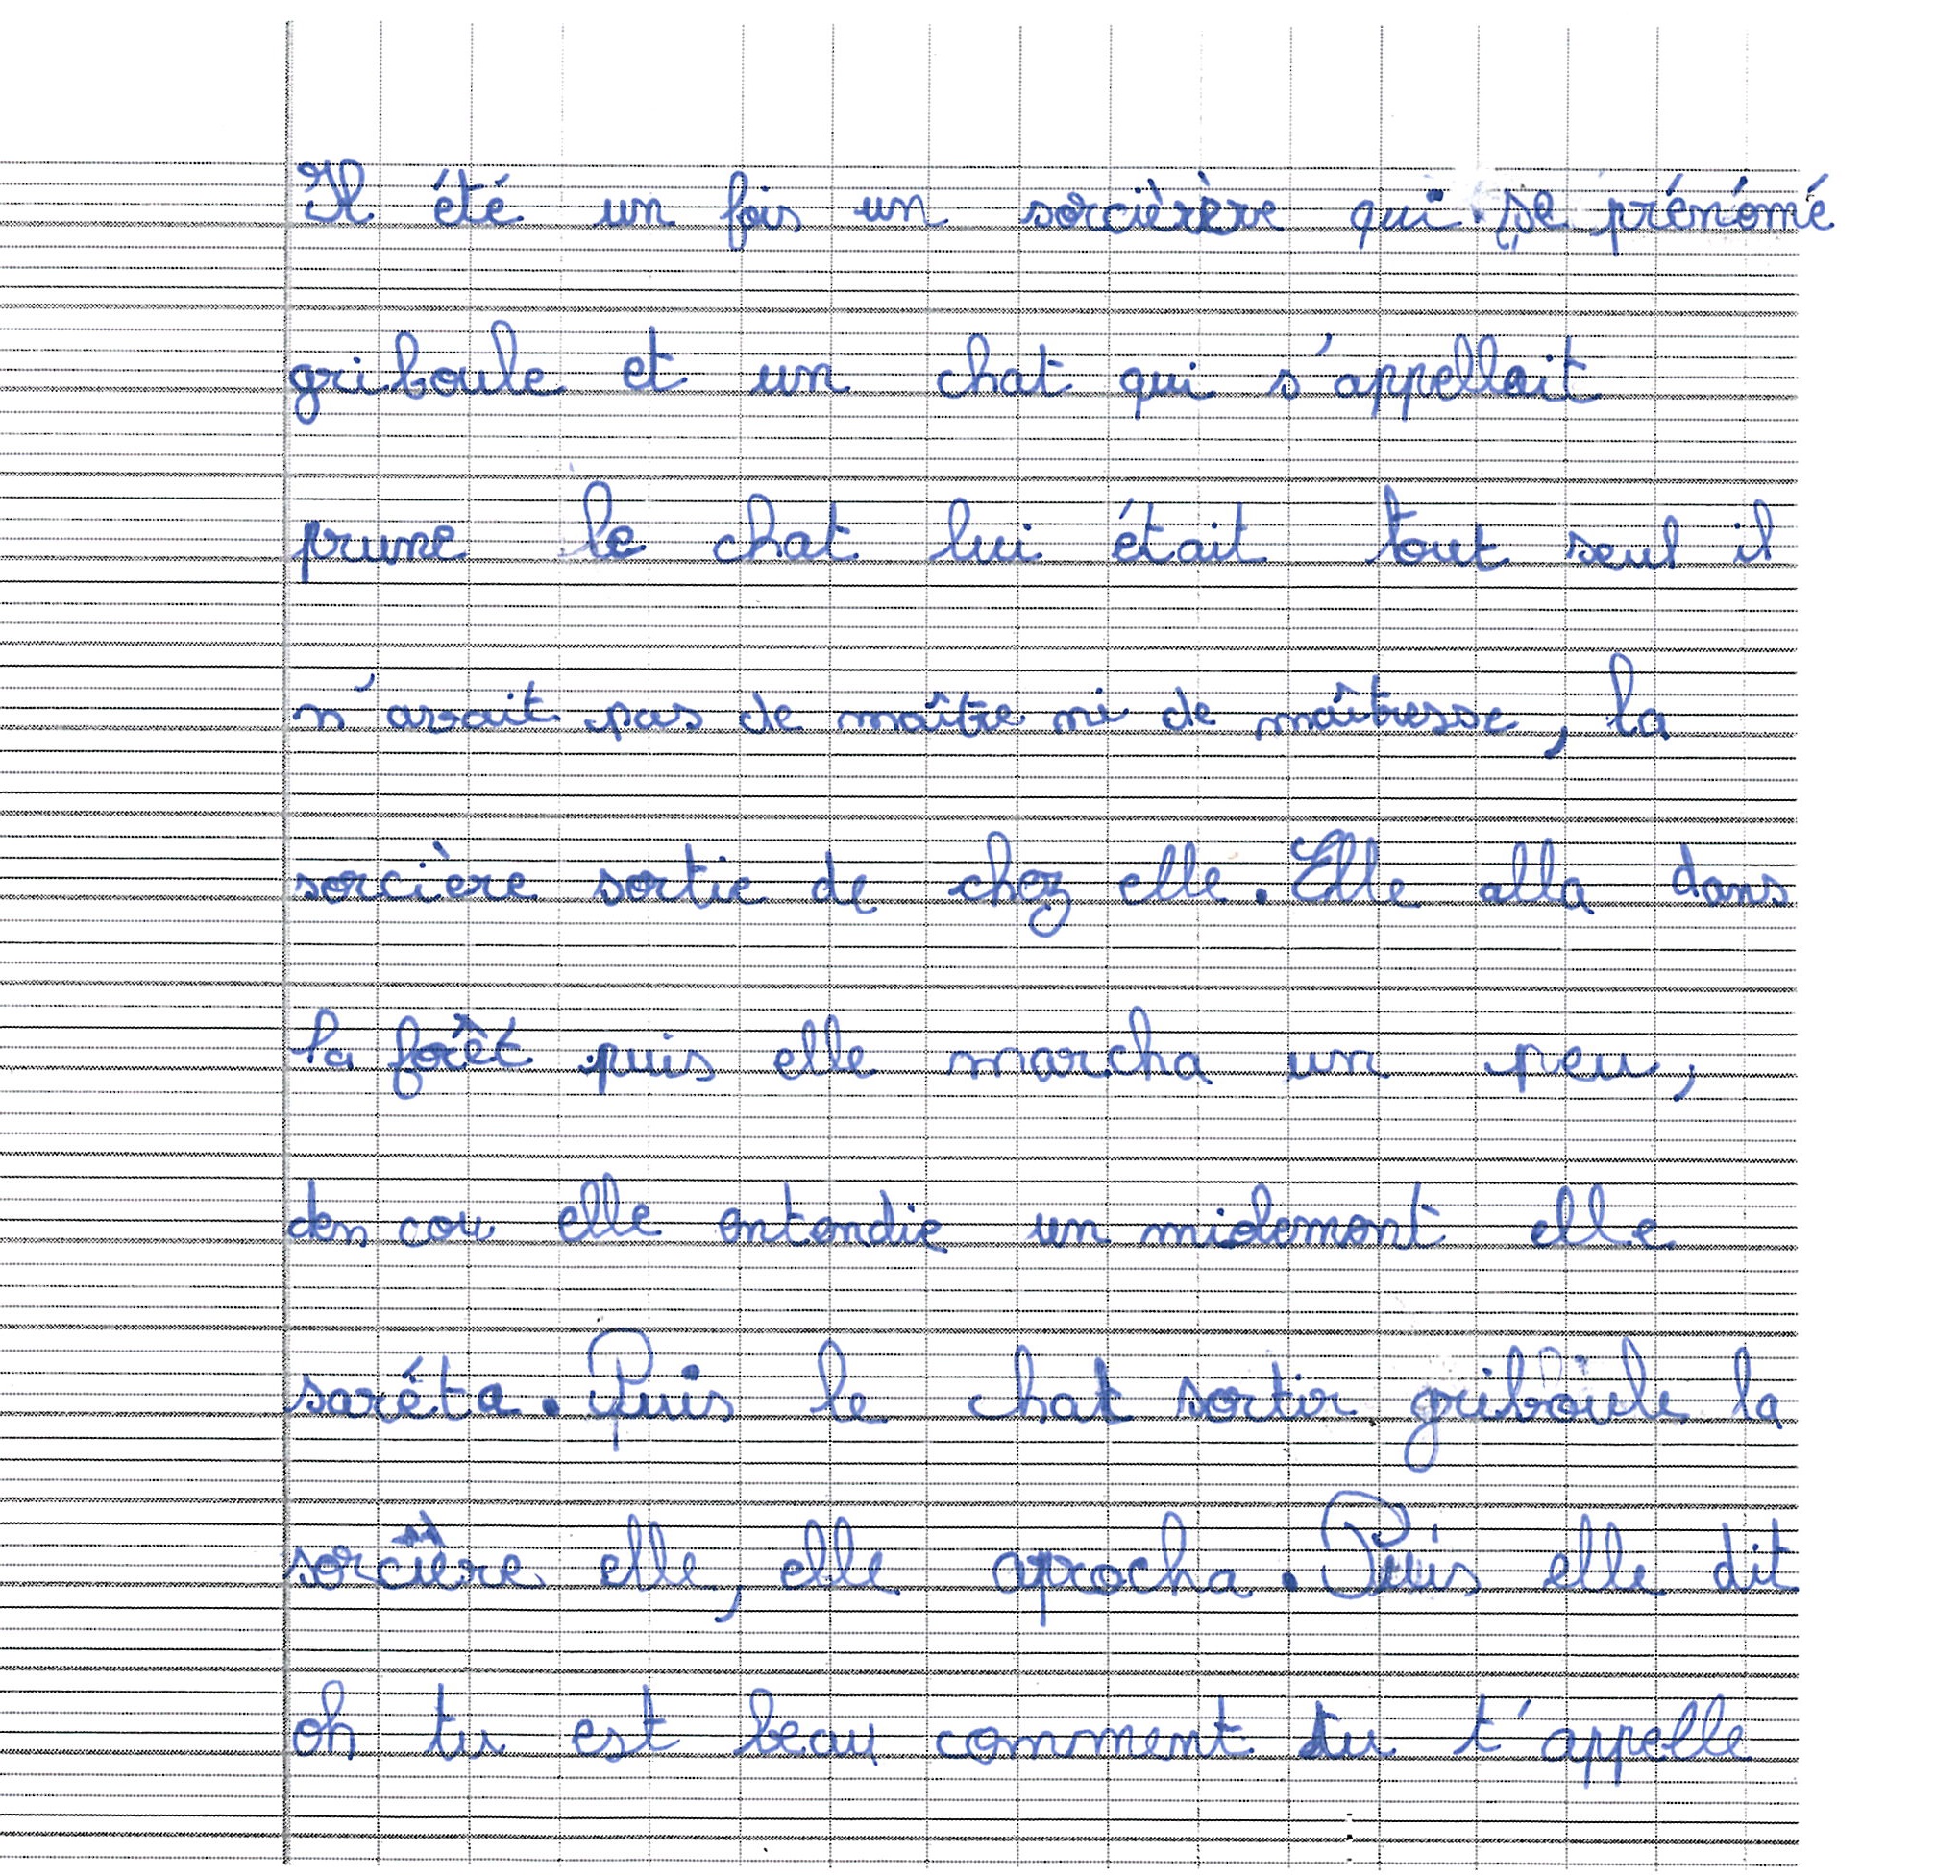 Il été un fois un sorcièrère qui se prénomé
griboule et un chat qui s'appellait
prune le chat lui était tout seul il
n'avait pas de maître ni de maîtresse, la
sorcière sortie de chez elle. Elle alla dans
la forêt puis elle marcha un peu,
den cou elle entendie un miolement elle
saréta. Puis le chat sortir griboule la
sorcière elle, elle aprocha. Puis elle dit
oh tu est beau comment tu t'appelle